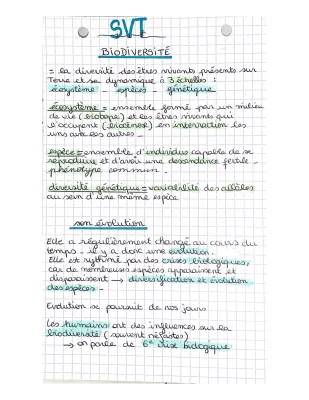 SVT
BIODIVERSITÉ
= la diversité des êtres vivants présents sur
Terre et sa dynamique à 3 échelles :
écosystème - espèces - génétique
écosystème = ensemble formé par un milieu
de vie (biotope) et les êtres vivants qui
l'occupent (biocénose) en interaction les
uns avec les autres -
espèce = ensemble d'individus capable de se
reproduire et d'avoir une descendance fertile -
phénotype commun -
diversité génétique = variabilité des allèles
au sein d'une même espèce
son évolution
Elle a régulièrement changé au cours du
temps - il y a donc une évolution -
Elle est rythmé par des crises biologiques,
car de nombreuses espèces apparaissent et
disparaissent → diversification et évolution
des espèces -
Evolution se poursuit de nos jours
Les humains ont des influences sur la
biodiversité (souvent néfastes)
→ on parle de 6e crise biologique